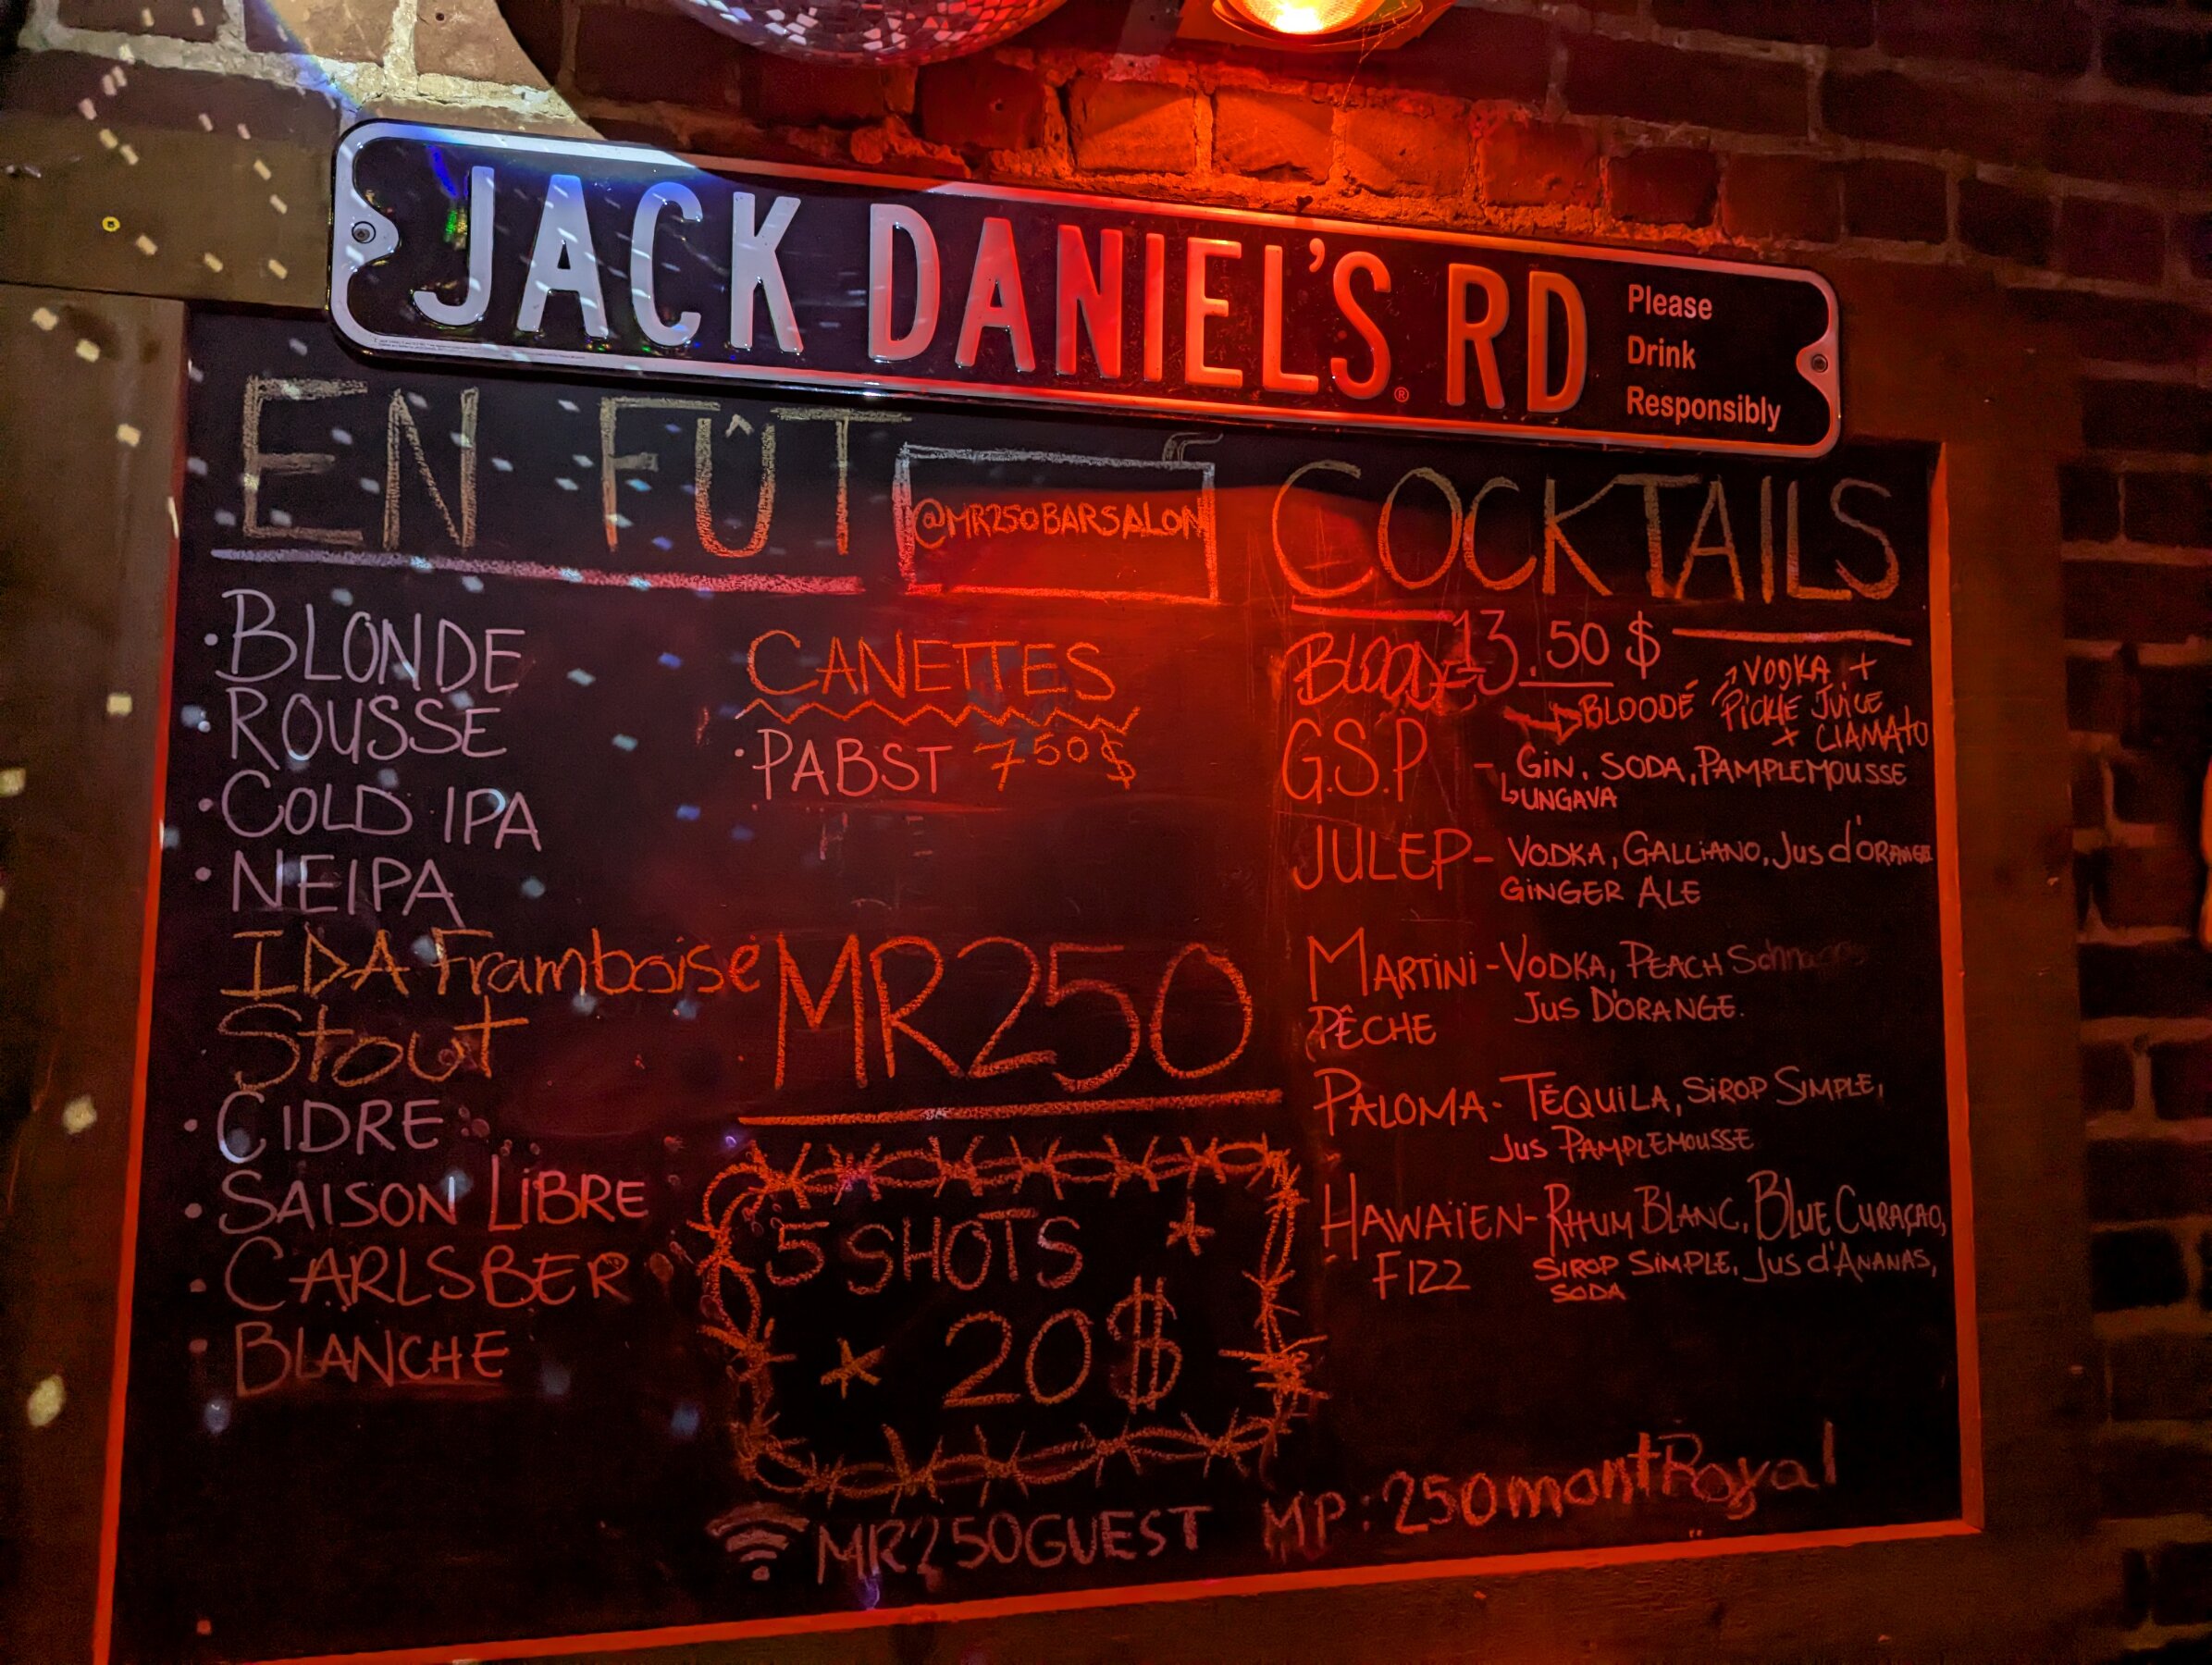 JACK DANIEL'S® RD
Please
Drink
Responsibly
EN FÛT
@MR250BARSALON
• BLONDE
ROUSSE
• COLD IPA
• NEIPA
IDA Framboise
Stout
• CIDRE
• SAISON LIBRE
• CARLSBER
• BLANCHE
CANETTES
• PABST 7 50 $
MR250
5 SHOTS
20$
COCKTAILS
13.50 $
BLOODÉ VODKA +
PICKLE JUICE
+ CLAMATO
G.S.P - GIN, SODA, PAMPLEMOUSSE
UNGAVA
JULEP - VODKA, GALLIANO, JUS d'ORANGE
GINGER ALE
MARTINI - VODKA, PEACH Schnapps
PÊCHE JUS D'ORANGE.
PALOMA - TÉQUILA, SIROP SIMPLE,
JUS PAMPLEMOUSSE
HAWAÏEN - RHUM BLANC, BLUE CURAÇAO,
FIZZ SIROP SIMPLE, JUS d'ANANAS,
SODA
MR250GUEST MP: 250montRoyal